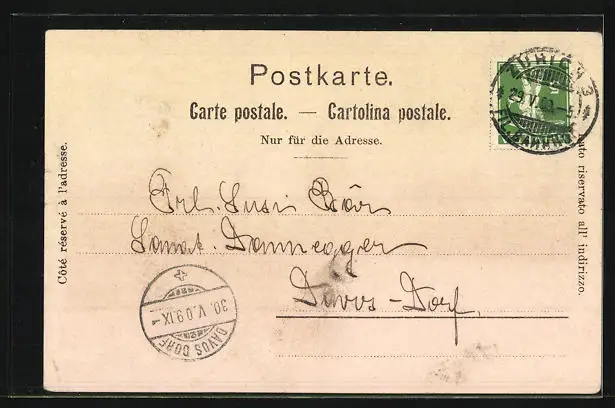 Postkarte.
Carte postale. — Cartolina postale.
Nur für die Adresse.
Côté réservé à l'adresse.
Lato riservato all' indirizzo.
ZÜRICH 3
29. V. 09.
Frl. Susi Bär
Sanat. Dannegger
Davos-Dorf.
30. V. 09. IX
DAVOS DORF